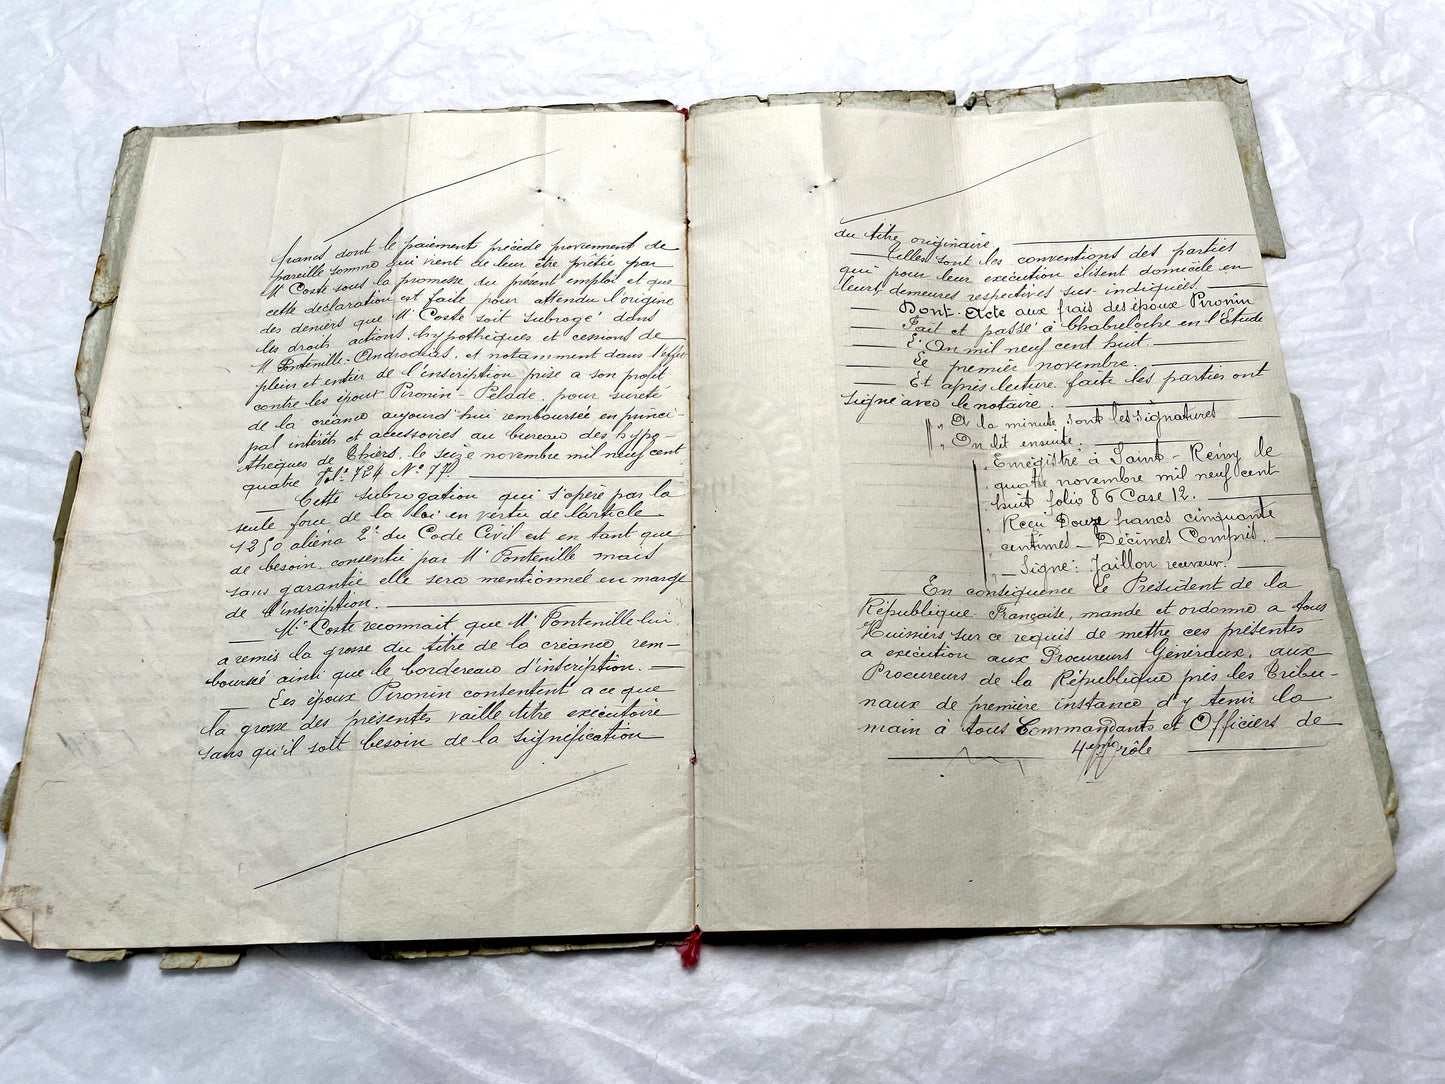 francs dont le paiement précède proviennent de
pareille somme qui vient de leur être prêtée par
Mr Coste sous la promesse du présent emploi et que
cette déclaration est faite pour attendu l'origine
des deniers que Mr Coste soit subrogé dans
les droits actions, hypothèques et cessions de
Mr Ponteville-Androdias, et notamment dans l'effet
plein et entier de l'inscription prise a son profit
contre les époux Pironin-Pelade, pour sureté
de la créance aujourd'hui remboursée en princi-
pal intérêts et accessoires au bureau des hypo-
thèques de Thiers, le seize novembre mil neuf cent
quatre Vol: 724 No 77
Cette subrogation qui s'opère par la
seule force de la loi en vertu de l'article
1250 aliéna 2° du Code Civil est en tant que
de besoin, consentie par Mr Ponteville mais
sans garantie elle sera mentionnée en marge
de l'inscription.
Mr Coste reconnait que Mr Ponteville lui
a remis la grosse du titre de la créance rem-
boursée ainsi que le bordereau d'inscription.
Les époux Pironin consentent a ce que
la grosse des présentes vaille titre exécutoire
sans qu'il soit besoin de la signification
du titre originaire
Telles sont les conventions des parties
qui pour leur exécution élisent domicile en
leurs demeures respectives sus-indiquées
Dont-Acte aux frais des époux Pironin
Fait et passé à Chabreloche en l'Etude
L'An mil neuf cent huit.
Le premier novembre.
Et après lecture faite les parties ont
signé avec le notaire.
" A la minute sont les signatures
" On lit ensuite.
Enregistré à Saint-Rémy le
quatre novembre mil neuf cent
huit folio 86 Case 12.
Reçu Douze francs cinquante
centimes_ Décimes Compris.
_ Signé: Jaillon receveur.
En conséquence Le Président de la
République-Française, mande et ordonne a tous
Huissiers sur ce requis de mettre ces présentes
a exécution aux Procureurs Généraux, aux
Procureurs de la République près les Tribu-
naux de première instance d'y tenir la
main à tous Commandants et Officiers de
4eme rôle